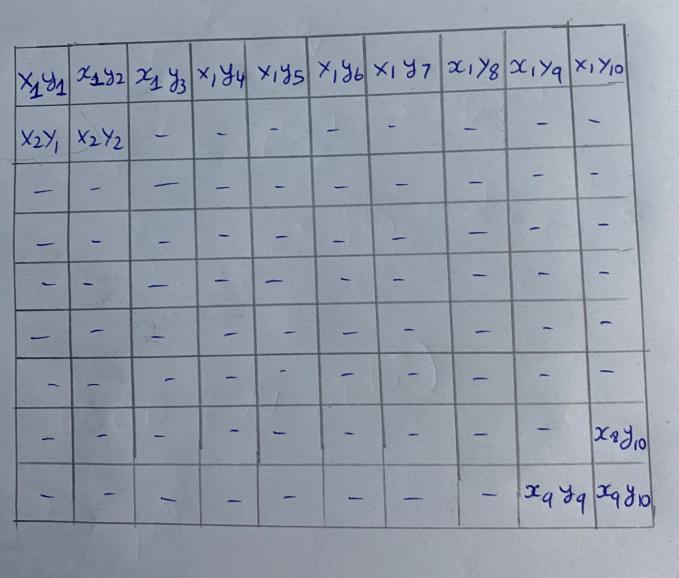 x₁y₁ x₁y₂ x₁y₃ x₁y₄ x₁y₅ x₁y₆ x₁y₇ x₁y₈ x₁y₉ x₁y₁₀
x₂y₁ x₂y₂ - - - - - - - -
- - - - - - - - - -
- - - - - - - - - -
- - - - - - - - - -
- - - - - - - - - -
- - - - - - - - - -
- - - - - - - - - x₈y₁₀
- - - - - - - - x₉y₉ x₉y₁₀